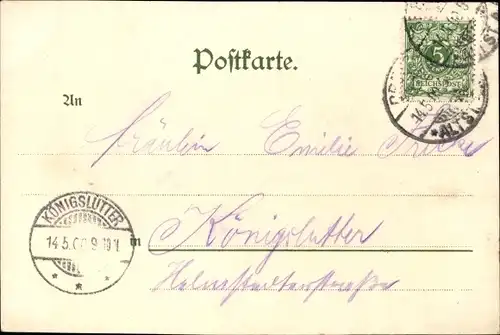 Postkarte.
5
REICHSPOST
An
Fräulein Emilie
KÖNIGSLUTTER
14.5.00 9-10 V
in
Königslutter
Helmstedterstraße
14.5.
* ALTST